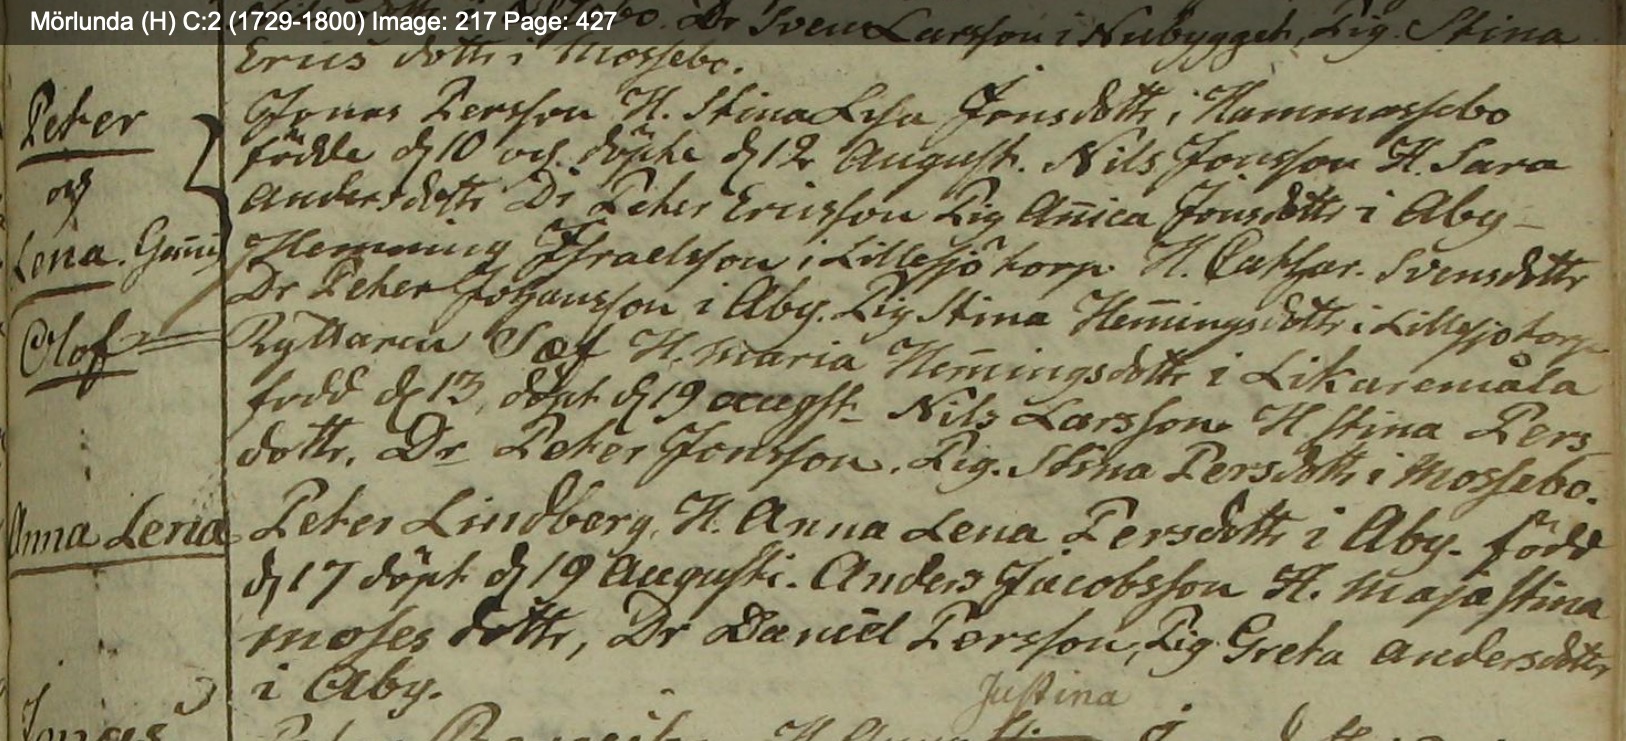 Mörlunda (H) C:2 (1729-1800) Image: 217 Page: 427
Dr Sven Larsson i Nubygget, Pig. Stina
Erics dottr i Mossebo.
Peter
och
Lena. Gemin
Jonas Persson H. Stina Lisa Jonsdottr i Hammarsebo
födde d 10 och döpte d 12 August. Nils Jonsson H. Sara
Andersdottr Dr Peter Ericsson Pig Añica Jonsdottr i Aby
Hemming Israelsson i Lillesjötorp H. Cathar. Svensdottr
Dr Peter Johansson i Aby. Pig Stina Hem̄ingsdottr i Lillesjötorp
Olof
Ryttaren Säf H. Maria Hem̄ingsdottr i Likaremåla
född d 13, döpt d 19 augst. Nils Larsson H Stina Pers
dottr. Dr Peter Jonsson. Pig. Stina Persdottr i Mossebo.
Anna Lena
Peter Lindberg, H. Anna Lena Persdottr i Aby. född
d 17 döpt d 19 Augusti. Anders Jacobsson H. Maja Stina
Moses dottr, Dr Daniel Persson, Pig. Greta Andersdottr
i Aby.
Justina
Jonas